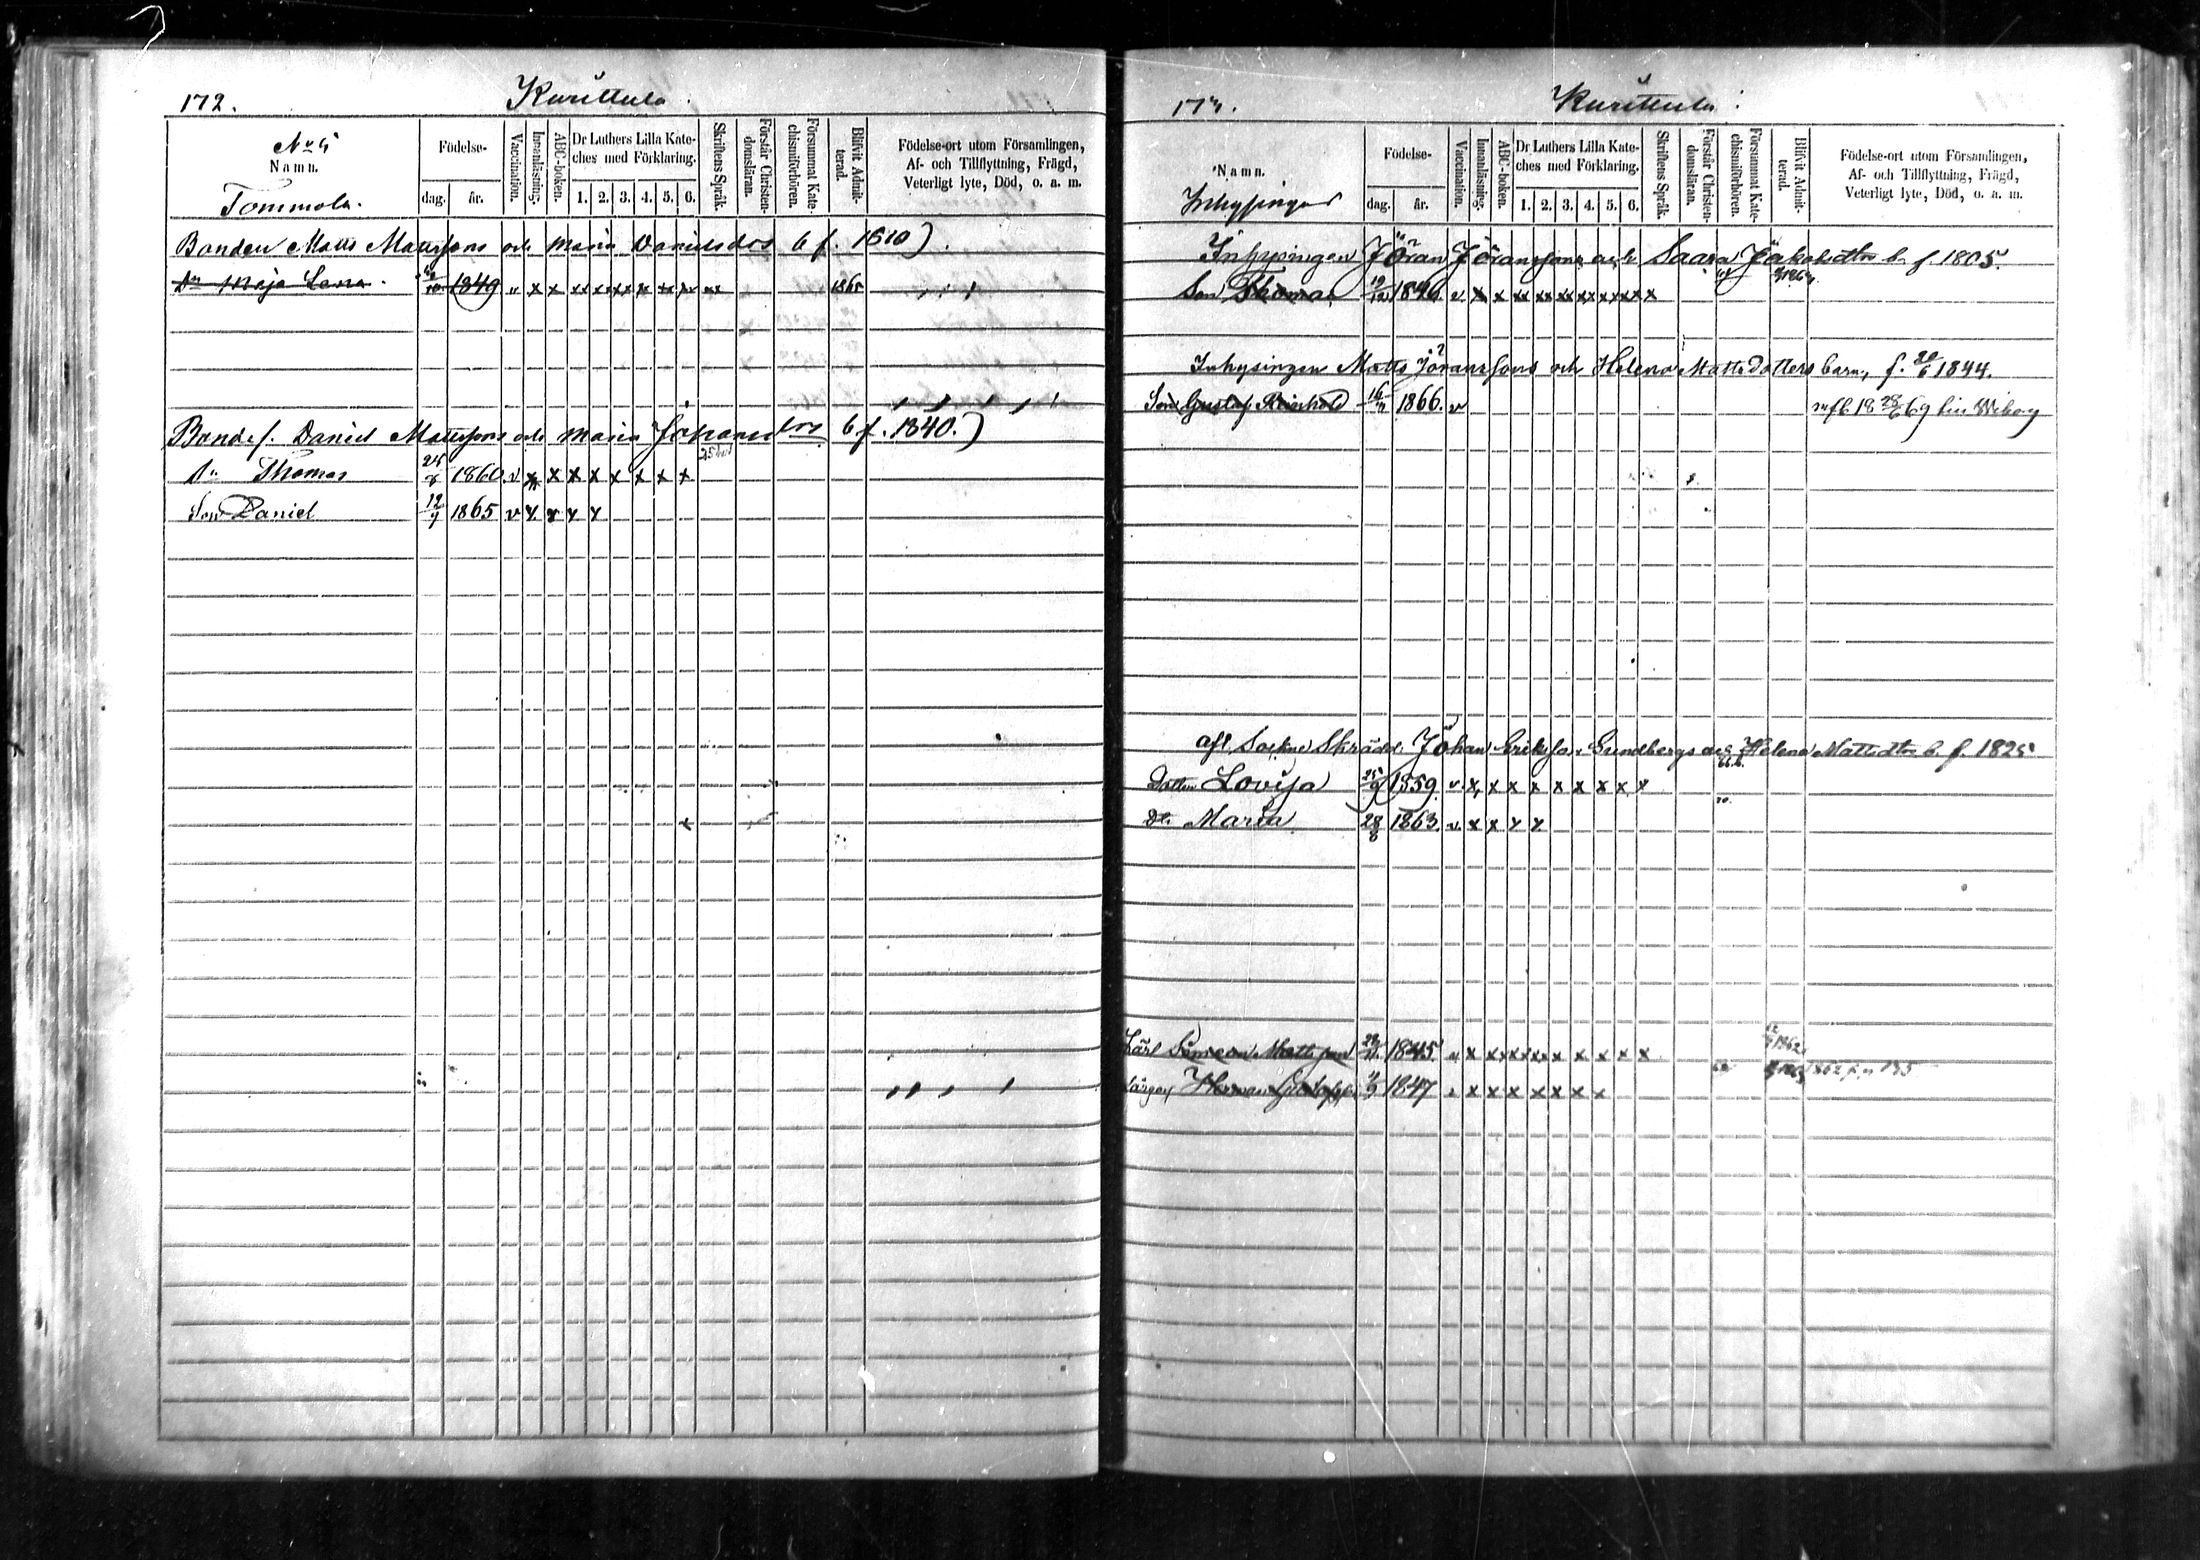 172.
Kurittula
No 4
Namn.
Tommola.
Födelse-
dag. år.
Vaccination.
Innanläsning.
ABC-boken.
Dr Luthers Lilla Kate-
ches med Förklaring.
1. 2. 3. 4. 5. 6.
Skriftens Språk.
Förstår Christen-
domsläran.
Försummat Kate-
chismiförhören.
Blifvit Admit-
terad.
Födelse-ort utom Församlingen,
Af- och Tillflyttning, Frägd,
Veterligt lyte, Död, o. a. m.
Bonden Matts Mattssons och Maria Danielsdos b f. 1810).
Dr Maja Lena 1849 v x x xx xx xx xx xx xx 1865
Bondes. Daniel Mattssons och Maria Johansdos b. f. 1840.)
Sn Thomas 1860. v x x x x x x x x
Son Daniel 12/9 1865 v x x x x
173.
Kurittula
Namn.
Inhysingar
Födelse-
dag. år.
Vaccination.
Innanläsning.
ABC-boken.
Dr Luthers Lilla Kate-
ches med Förklaring.
1. 2. 3. 4. 5. 6.
Skriftens Språk.
Förstår Christen-
domsläran.
Försummat Kate-
chismiförhören.
Blifvit Admit-
terad.
Födelse-ort utom Församlingen,
Af- och Tillflyttning, Frägd,
Veterligt lyte, Död, o. a. m.
Inhysingen Jöran Jöranssons och Saara Jakobsdtrs b. f 1805.
Son Thomas 19/12 1846. v x x xx xx xx xx xx x x x
Inhysingen Matts Jöranssons och Helena Mattsdotters barn, f. 1844.
Son Gustaf Reinhold 16/11 1866. v Wiborg
afl. Sockne Skrädd. Johan Eriksson Grundbergs och Helena Mattsdtrs b. f. 1825
Dotter Lovisa 25/9 1859. v. x x x x x x x x x
Dtr Maria 28/8 1863. v. x x x x
Lärl Simeon Mattsson 1845. v x x x x x x x x x x
Lärgoss Herman Gustafss 1847 v x x x x x x x